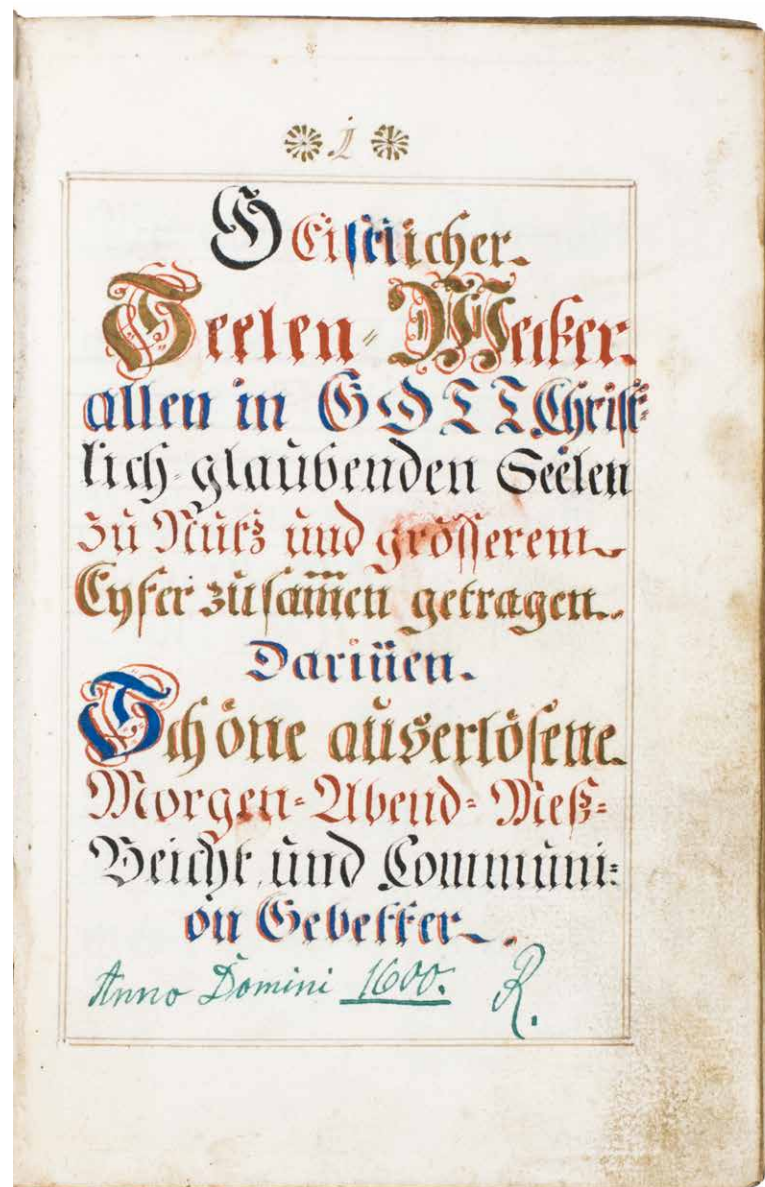 1
GEistlicher.
Seelen-Wecker.
allen in GOTT Christ-
lich-glaubenden Seelen
zu Nutz und grösserem
Eyfer zusam̄en getragen.
Darin̄en.
Schöne auserlösene
Morgen-Abend-Meß-
Beicht und Communi-
on Gebetter.
Anno Domini 1600. R.